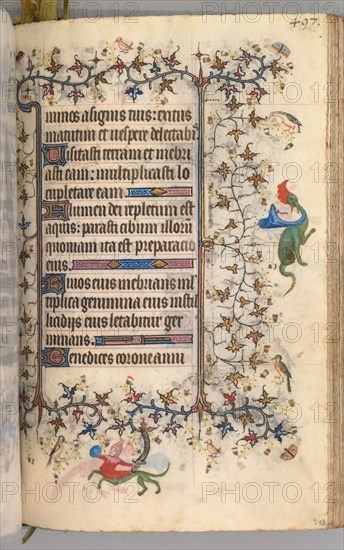 497.
minos a signis tuis: exitus
matutini et uespere delectabis
Uisitasti terram et inebri
asti eam: multiplicasti lo
cupletare eam.
Flumen dei repletum est
aquis: parasti cibum illorum
quoniam ita est preparacio
eius.
Riuos eius inebrians mul
tiplica genimina eius instil
licidijs eius letabitur ger
minans.
Benedices corone anni